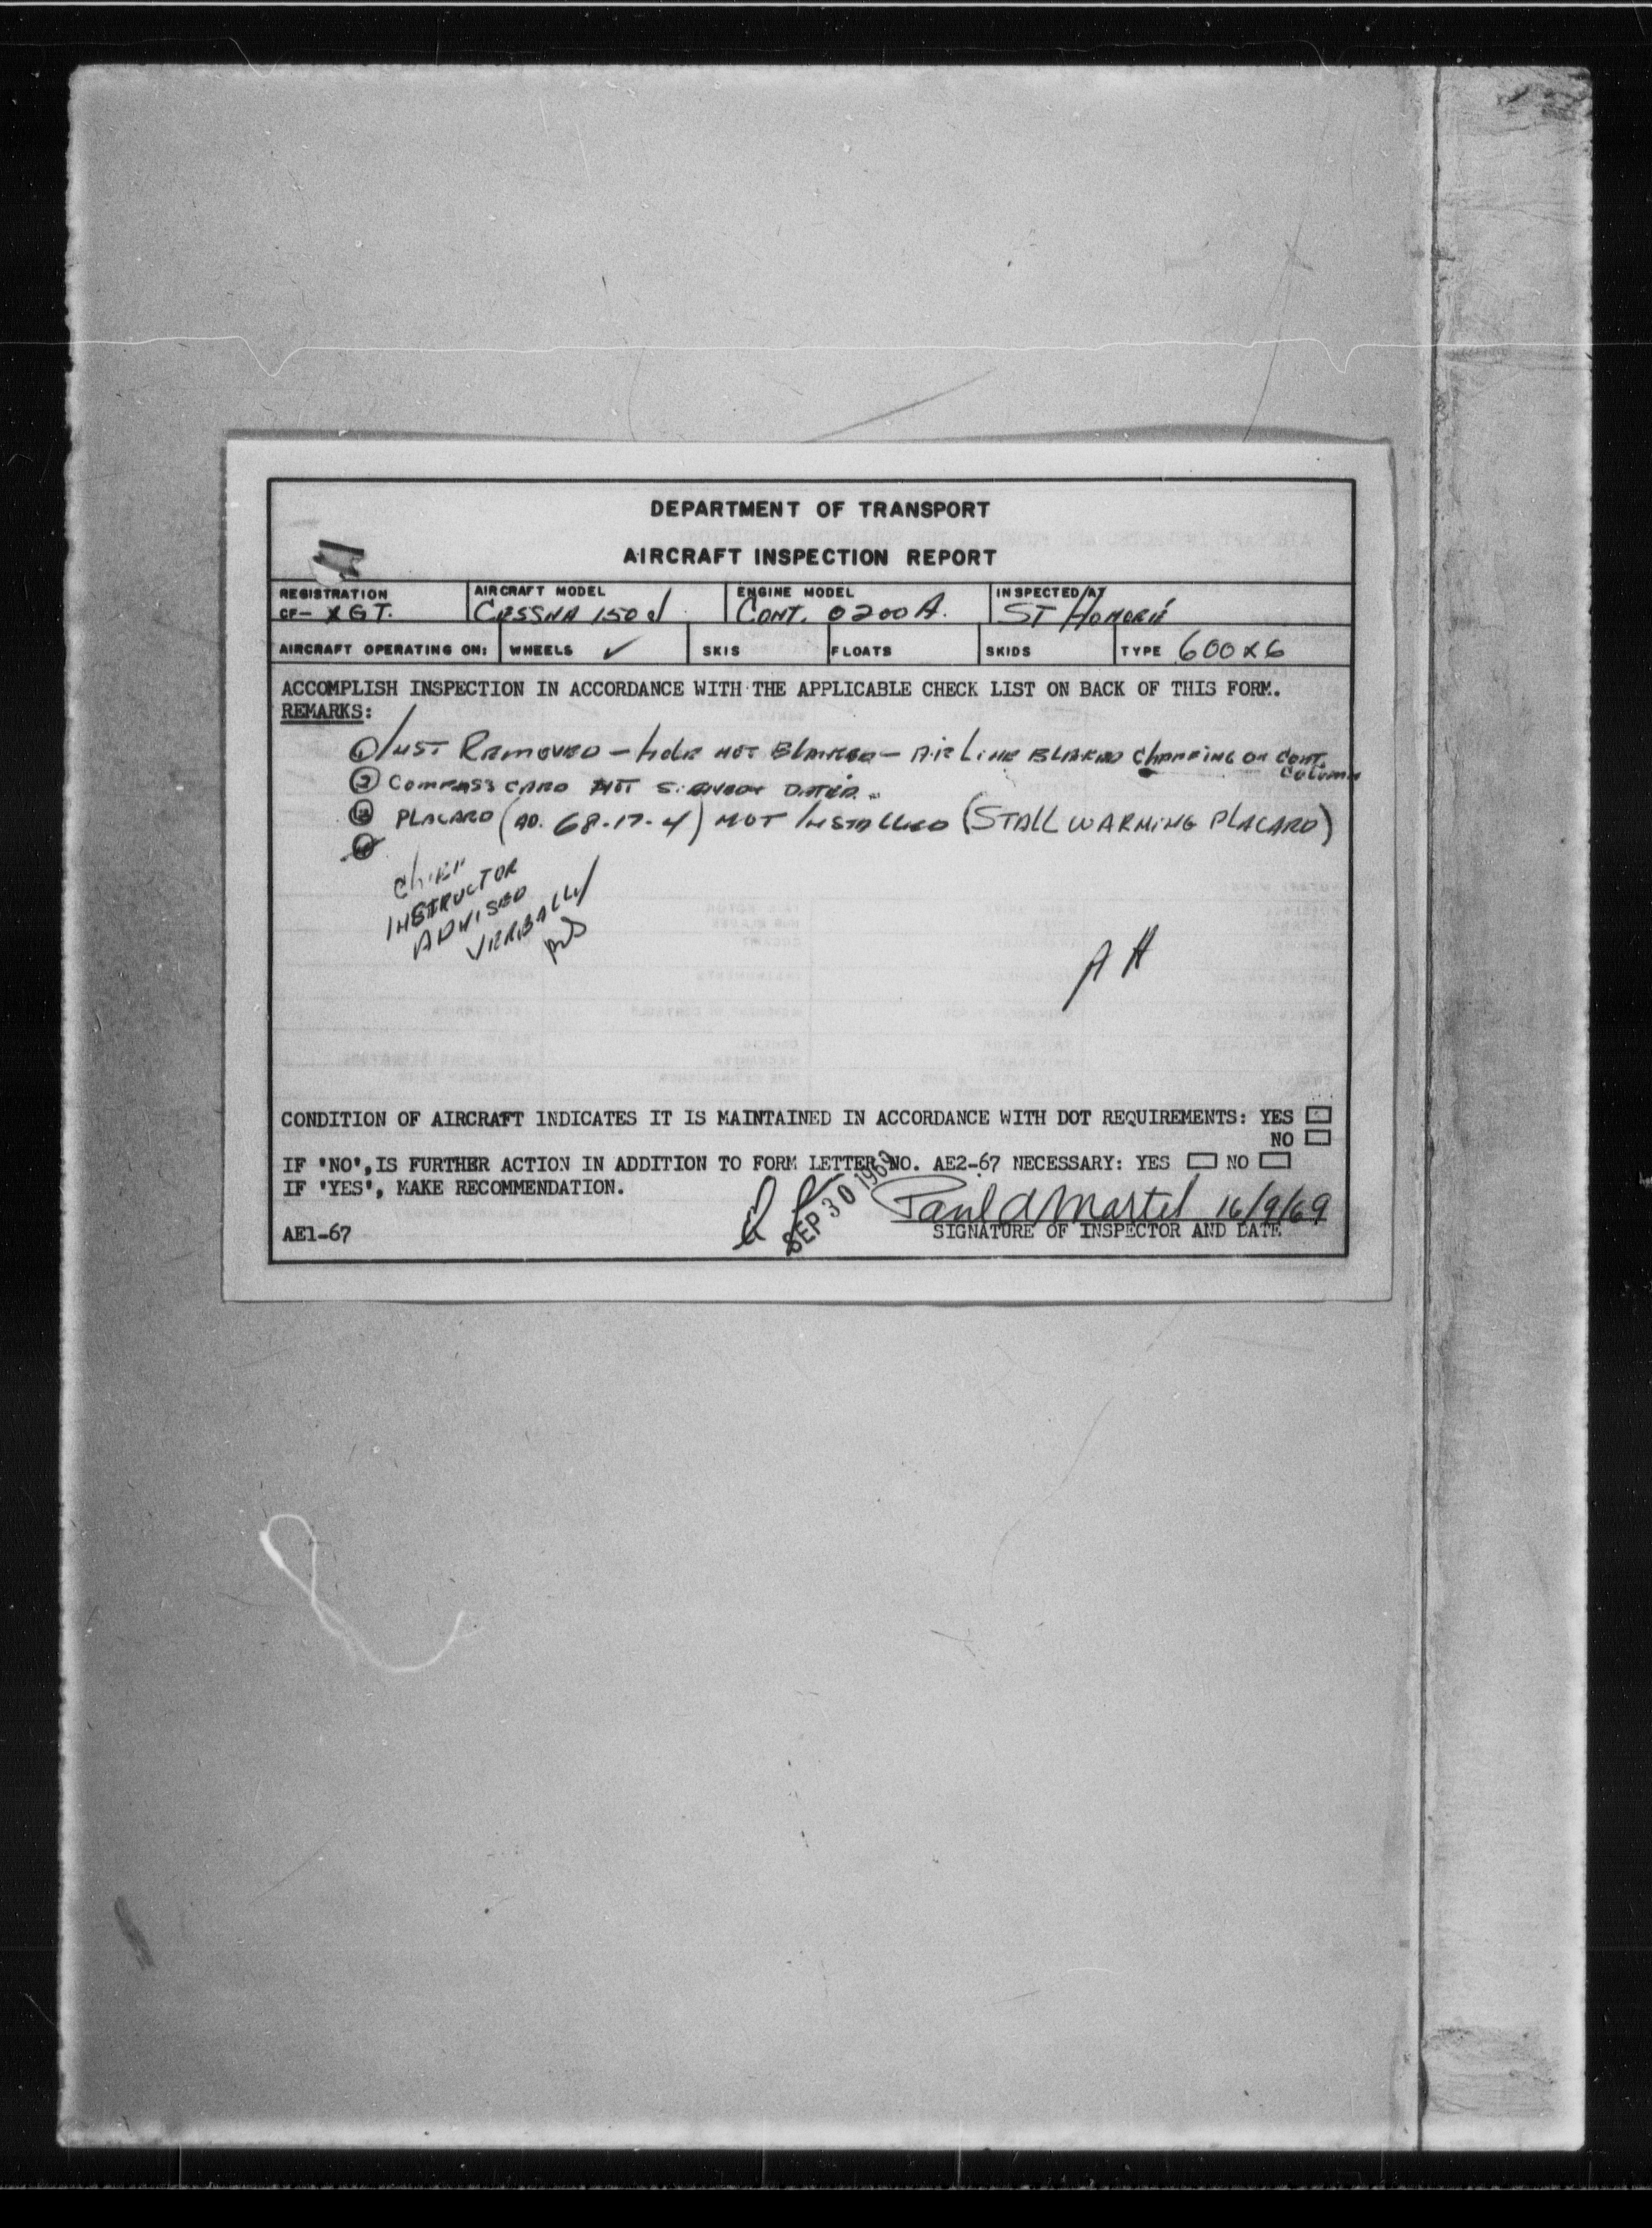 DEPARTMENT OF TRANSPORT
AIRCRAFT INSPECTION REPORT
REGISTRATION AIRCRAFT MODEL ENGINE MODEL INSPECTED AT
CF- XGT. CESSNA 150J CONT. O200A. ST HONORÉ
AIRCRAFT OPERATING ON: WHEELS ✓ SKIS FLOATS SKIDS TYPE 600X6
ACCOMPLISH INSPECTION IN ACCORDANCE WITH THE APPLICABLE CHECK LIST ON BACK OF THIS FORM.
REMARKS:
① INST REMOVED - HOLE NOT BLANKED - AIR LINE CHAFFING ON CONT.
COLUMN
② COMPASS CARD NOT DATED.
③ PLACARD (AD. 68-17-4) NOT INSTALLED (STALL WARNING PLACARD)
CHIEF
INSTRUCTOR
ADVISED
VERBALLY
A H
CONDITION OF AIRCRAFT INDICATES IT IS MAINTAINED IN ACCORDANCE WITH DOT REQUIREMENTS: YES
NO
IF 'NO', IS FURTHER ACTION IN ADDITION TO FORM LETTER NO. AE2-67 NECESSARY: YES NO
IF 'YES', MAKE RECOMMENDATION.
SEP 30 1969
Paul A Martel 16/9/69
AE1-67 SIGNATURE OF INSPECTOR AND DATE